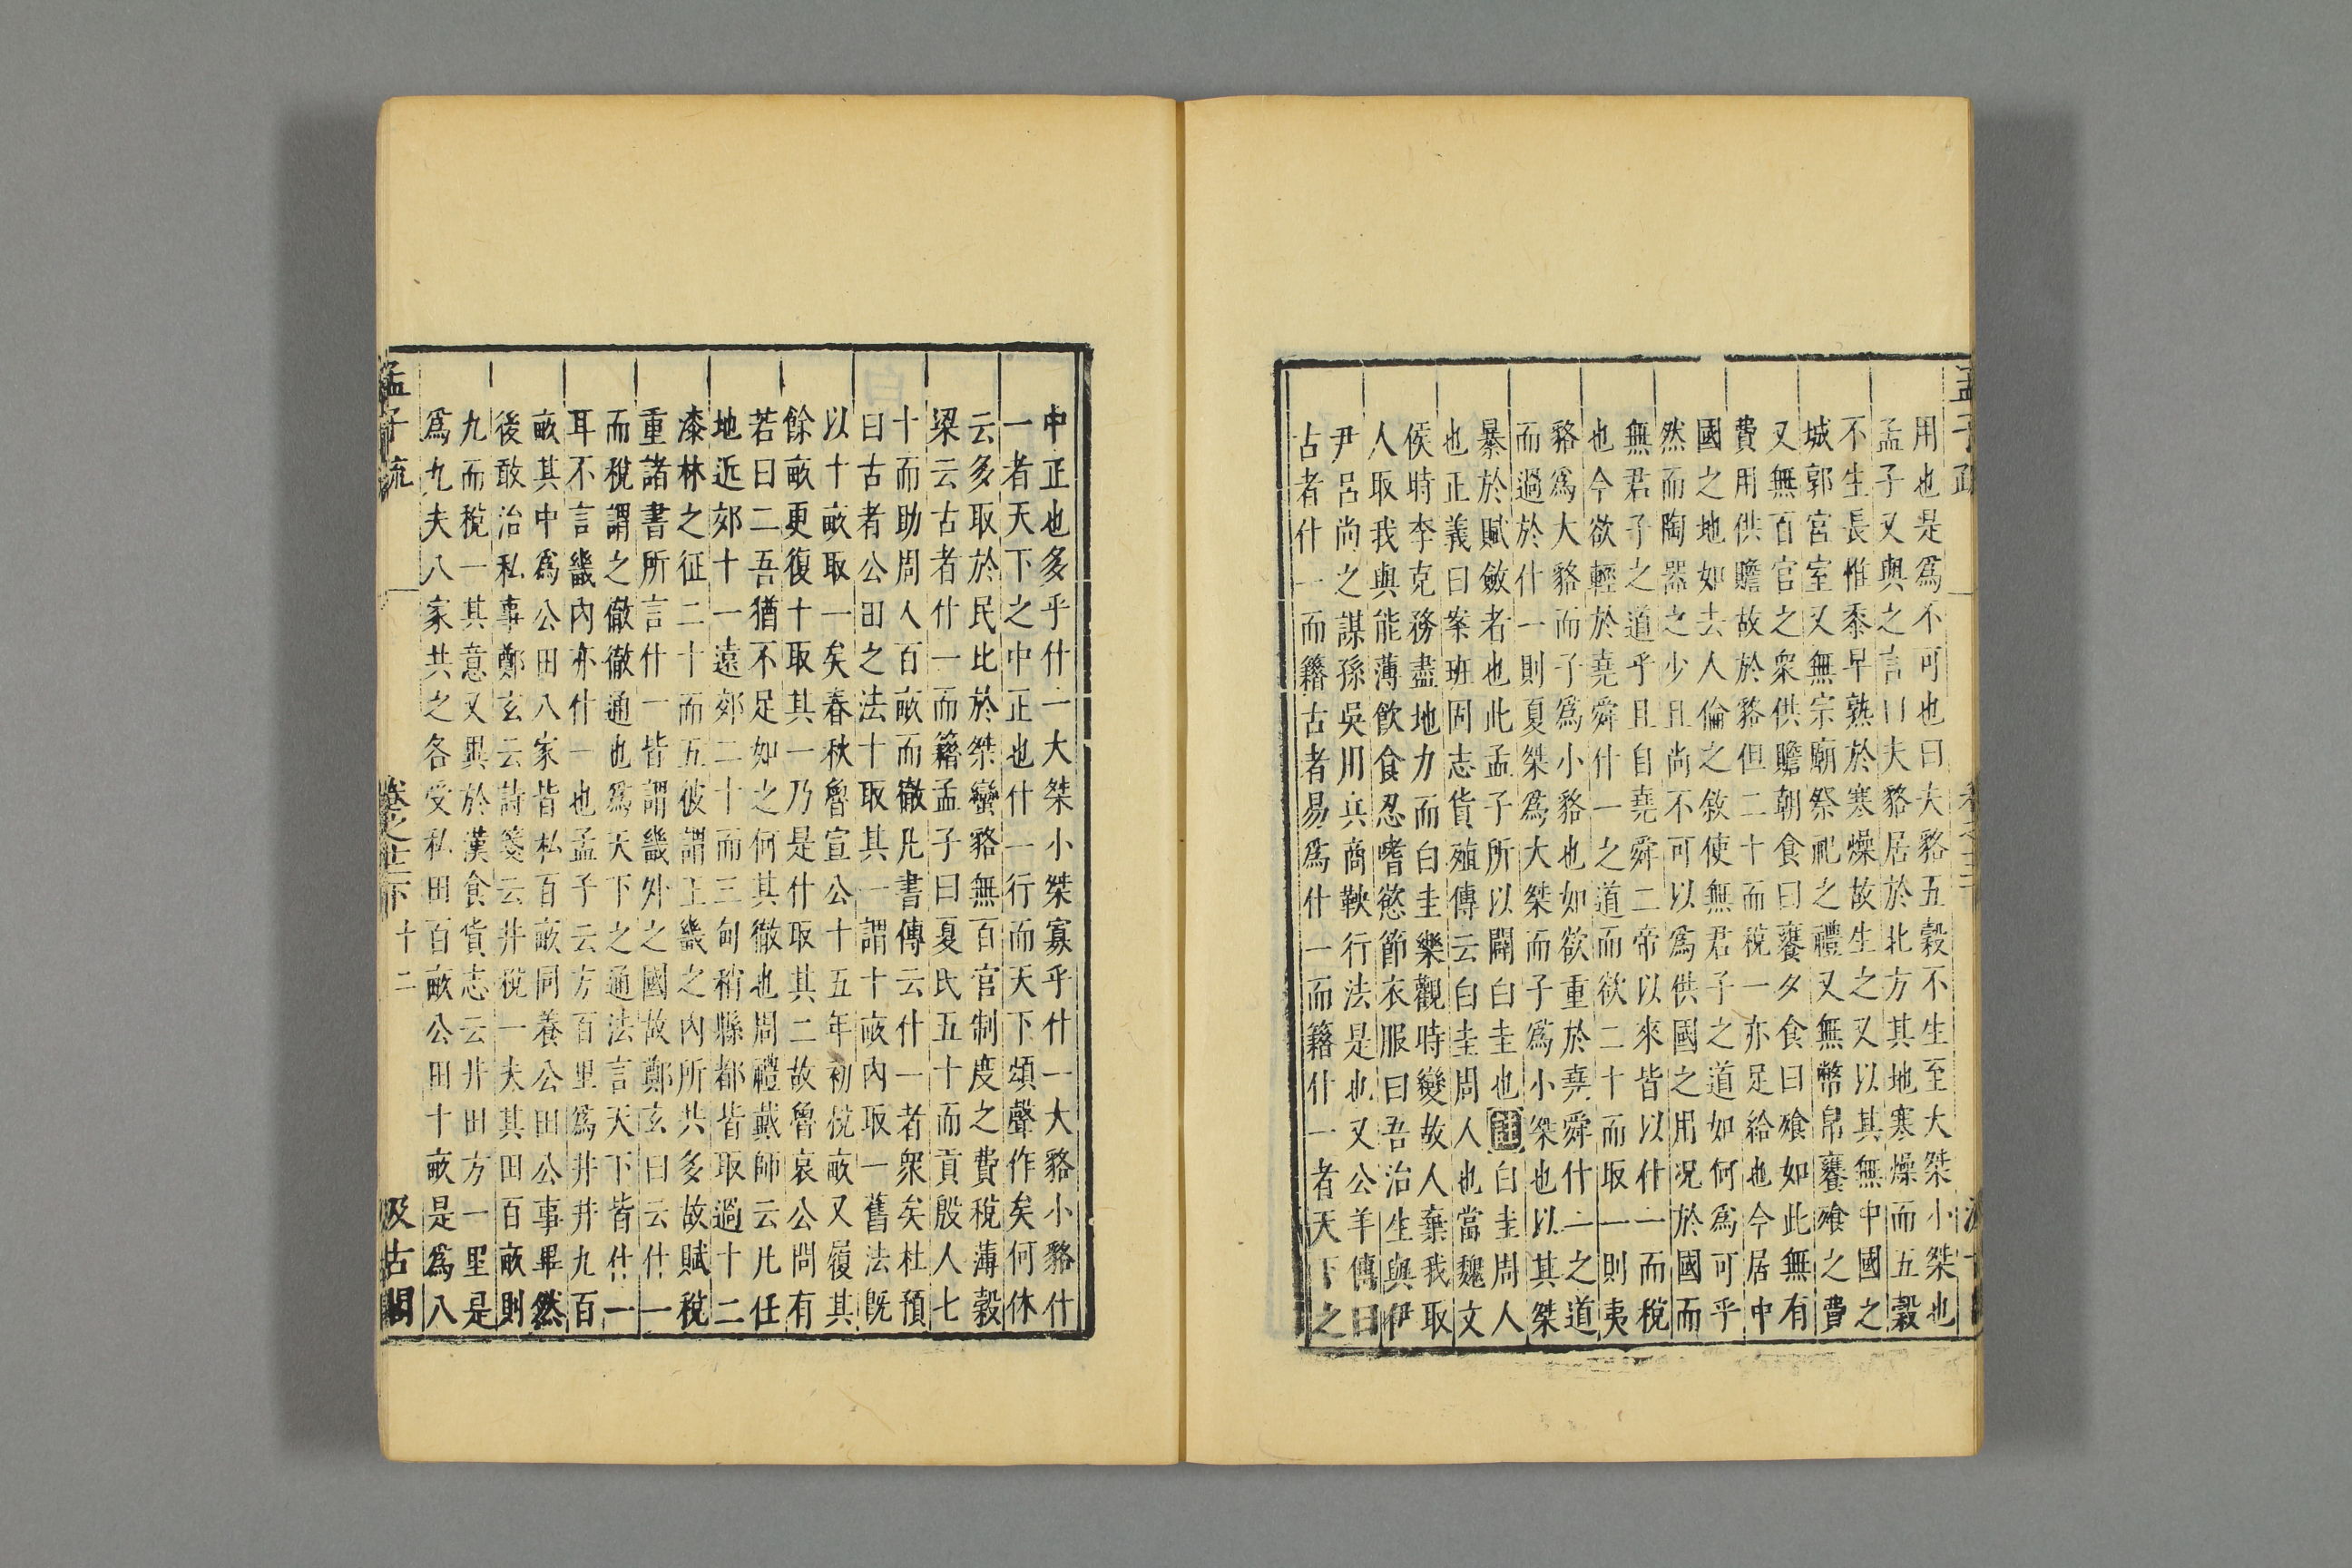 用也是為不可也曰夫貉五穀不生至大桀小桀也
孟子又與之言曰夫貉居於北方其地寒燥而五穀
不生長惟黍早熟於寒燥故生之又以其無中國之
城郭宮室又無宗廟祭祀之禮又無幣帛饔飧之費
又無百官之衆供贍朝食曰饔夕食曰飧如此無有
費用供贍故於貉但二十而稅一亦足給也今居中
國之地如去人倫之敘使無君子之道如何為可乎
然而陶器之少且尚不可以為供國之用况於國而
無君子之道乎且自堯舜二帝以來皆以什一而稅
也今欲輕於堯舜什一之道而欲二十而取一則夷
貉為大貉而子為小貉也如欲重於堯舜什一之道
而過於什一則夏桀為大桀而子為小桀也以其桀
暴於賦斂者也此孟子所以闢白圭也註白圭周人
也正義曰案班固志貨殖傳云白圭周人也當魏文
侯時李克務盡地力而白圭樂觀時變故人棄我取
人取我與能薄飲食忍嗜慾節衣服曰吾治生與伊
尹呂尚之謀孫吳用兵商鞅行法是也又公羊傳曰
古者什一而籍古者易為什一而籍什一者天下之
中正也多乎什一大桀小桀寡乎什一大貉小貉什
一者天下之中正也什一行而天下頌聲作矣何休
云多取於民比於桀蠻貉無百官制度之費稅薄穀
梁云古者什一而籍孟子曰夏氏五十而貢殷人七
十而助周人百畝而徹凡書傳云什一者衆矣杜預
曰古者公田之法十取其一謂十畝內取一舊法既
以十畝取一矣春秋魯宣公十五年初稅畝又履其
餘畝更復十取其一乃是什取其二故魯哀公問有
若曰二吾猶不足如之何其徹也周禮載師云凡任
地近郊十一遠郊二十而三甸稍縣都皆取過十二
漆林之征二十而五彼謂王畿之內所共多故賦稅
重諸書所言什一皆謂畿外之國故鄭玄曰云什一
而稅謂之徹徹通也為天下之通法言天下皆什一
耳不言畿內亦什一也孟子云方百里為井井九百
畝其中為公田八家皆私百畝同養公田公事畢然
後敢治私事鄭玄云詩箋云井稅一夫其田百畝則
九而稅一其意又異於漢食貨志云井田方一里是
為九夫八家共之各受私田百畝公田十畝是為八
孟子疏 卷之十二下 十二 汲古閣